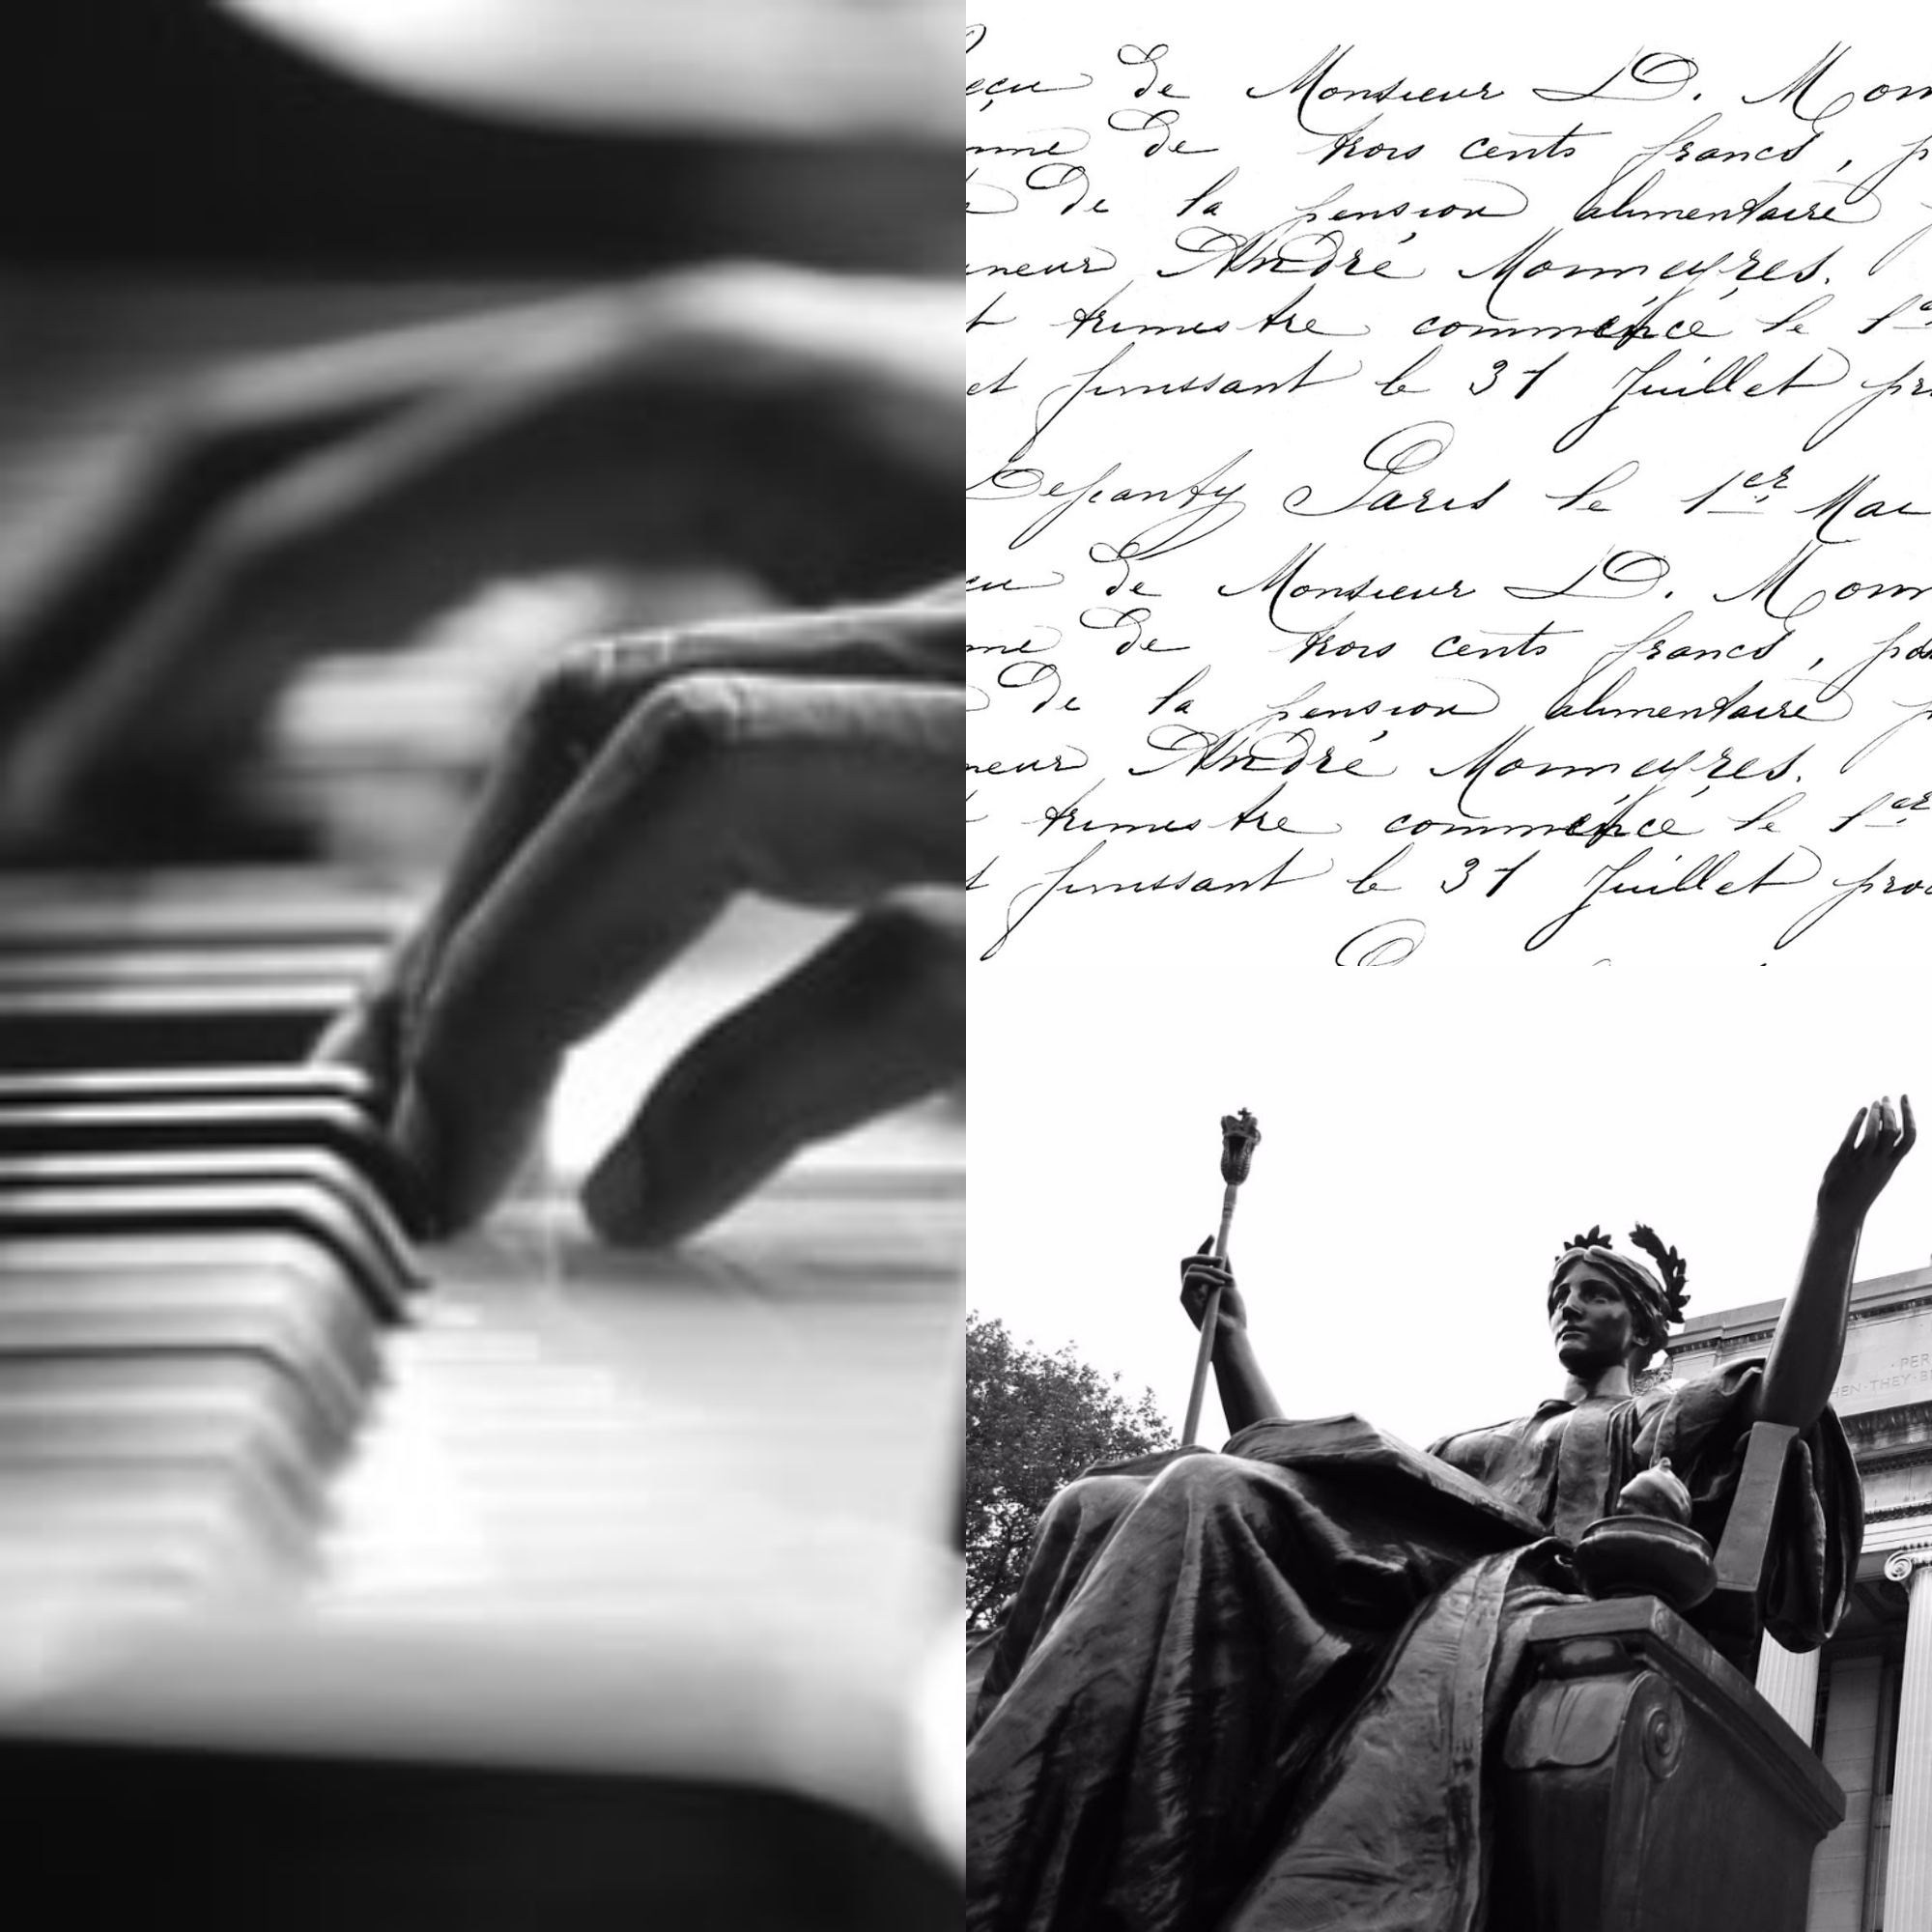 eçu de Monsieur D. Mon
mme de trois cents francs, p
de la pension alimentaire
ineur André Monmeyres.
t trimestre commencé le 1er
et finissant le 31 Juillet pr
Paris le 1er Mai
çu de Monsieur D. Monn
me de trois cents francs, po
De la pension alimentaire p
neur André Monmeyres.
trimestre commencé le 1er
t finissant le 31 Juillet proc
· PER
HEN · THEY · B